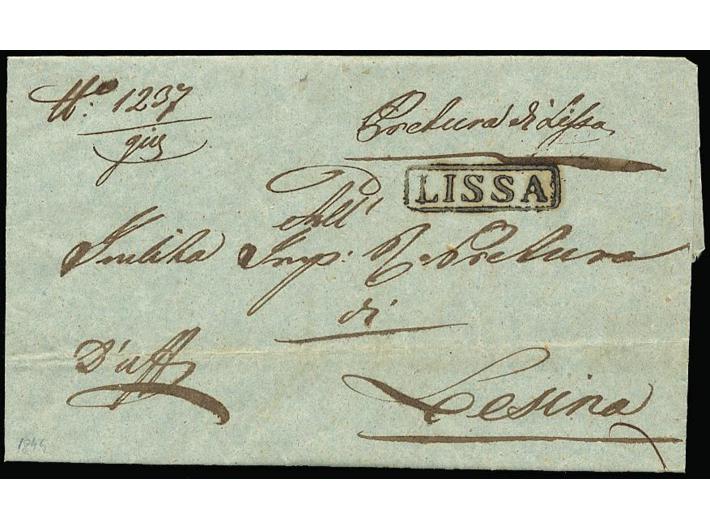 N.º 1237
giu
Pretura di Lissa
LISSA
All'
Inclita Imp: R. Pretura
di
D'uff
Lesina